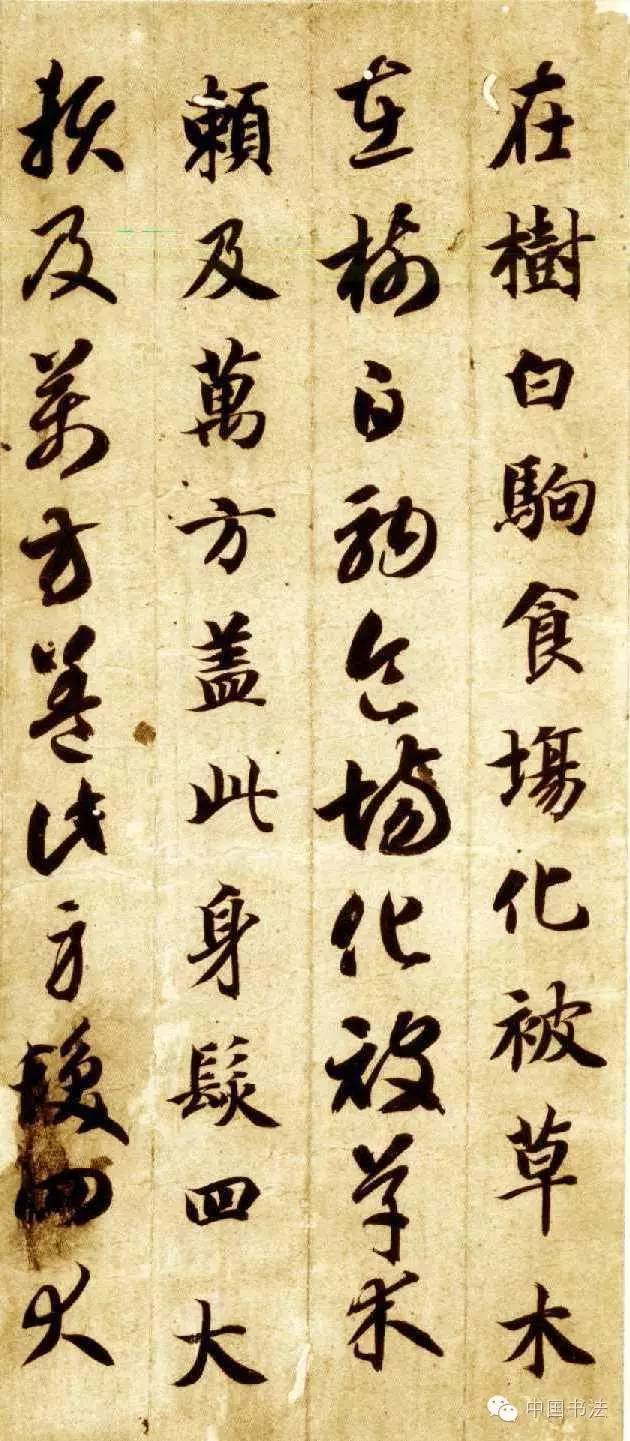 在樹白駒食場化被草木
在樹白駒食場化被草木
賴及萬方蓋此身髮四大
賴及萬方蓋此身髮四大
中国书法